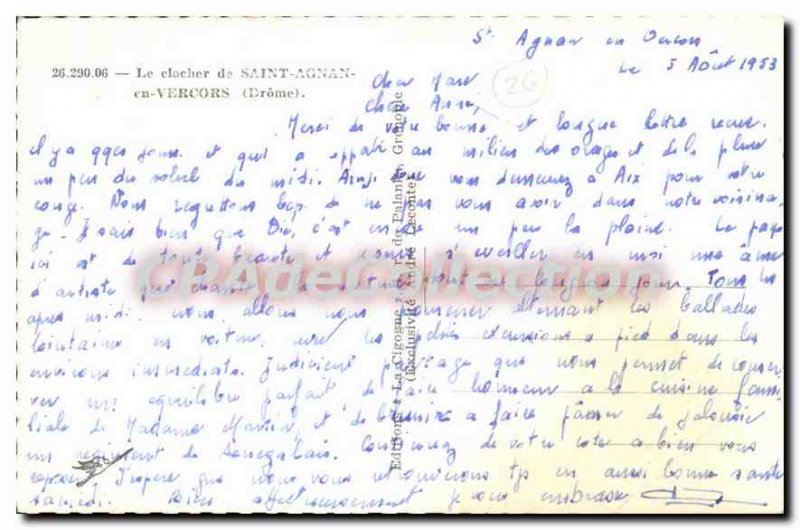 St Agnan en Vercors
le 5 Août 1953
26.290.06 — Le clocher de SAINT-AGNAN-
en-VERCORS (Drôme).
26
Cher Marc
Chère Anne,
Merci de votre bonne et longue lettre recue.
il y a qques jours et qui a apporté au milieu des orages et de la pluie
un peu du soleil du midi. Ainsi donc vous demeurez à Aix pour votre
congé. Nous regrettons bcp de ne pas vous avoir dans notre voisina
ge. Je sais bien que Die, c'est un peu la plaine. Le pays
ici est de toute beauté et pourrait s'eveiller en moi une âme
d'artiste Tous les
après midi nous allons nous promener alternant les ballades
lointaines en voiture avec les petites excursions à pied dans les
environs immediats. Judicieux partage qui nous permet de conser
ver un equilibre parfait de faire honneur a la cuisine fami
liale de Madame et de a faire pâmer de jalousie
un regiment de Senegalais. de votre coté a bien vous
reposer J'espère que nous vous retrouverons tjs en aussi bonne santé
Bien affectueusement je vous embrasse
Editions « La Cigogne » rue de Palanka Grenoble
(Exclusivité André Lecomte)
CPAdeCollection